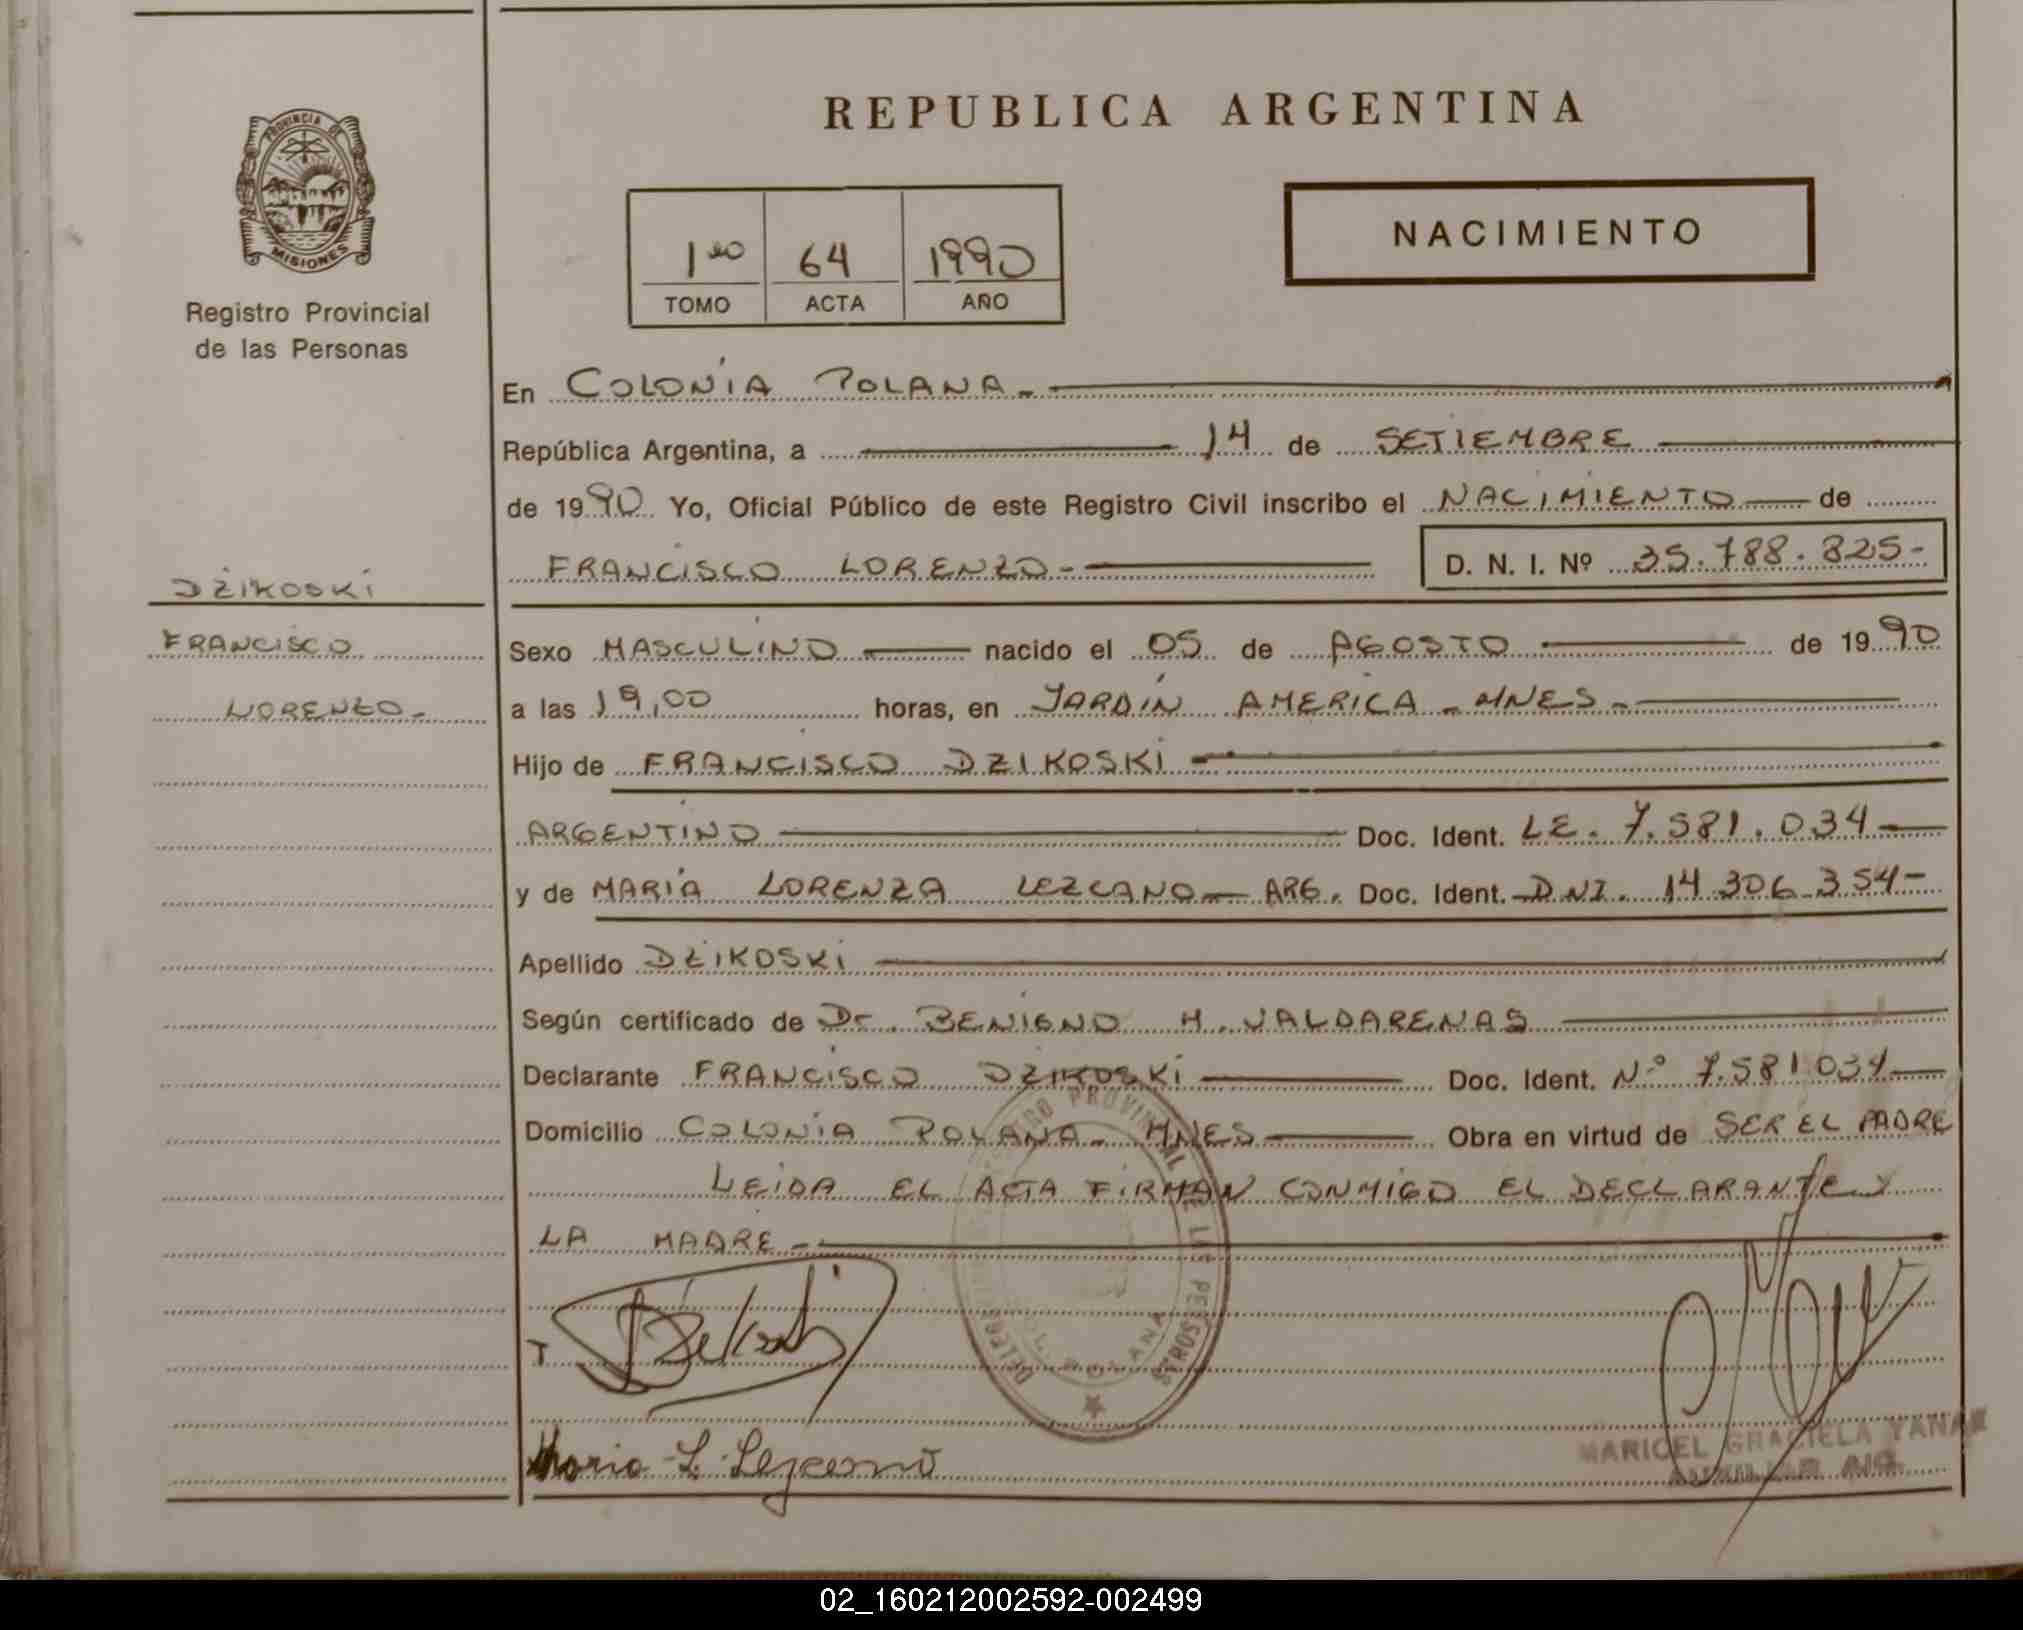 PROVINCIA DE
MISIONES
Registro Provincial
de las Personas
REPUBLICA ARGENTINA
1ro 64 1990
TOMO ACTA AÑO
NACIMIENTO
En COLONIA POLANA.-
República Argentina, a 14 de SETIEMBRE
de 1990 Yo, Oficial Público de este Registro Civil inscribo el NACIMIENTO de
FRANCISCO LORENZO.- D. N. I. Nº 35.788.825-
DZIKOSKI
FRANCISCO
LORENZO.-
Sexo MASCULINO nacido el 05 de AGOSTO de 1990
a las 19,00 horas, en JARDIN AMERICA - MNES.-
Hijo de FRANCISCO DZIKOSKI
ARGENTINO Doc. Ident. LE. 7.581.034
y de MARIA LORENZA LEZCANO - ARG. Doc. Ident. DNI. 14.306.354-
Apellido DZIKOSKI
Según certificado de Dr. BENIGNO H. VALDARENAS
Declarante FRANCISCO DZIKOSKI Doc. Ident. Nº 7.581.034
Domicilio COLONIA POLANA - MNES Obra en virtud de SER EL PADRE
LEIDA EL ACTA FIRMAN CONMIGO EL DECLARANTE Y
LA MADRE.-
REGISTRO PROVINCIAL DE LAS PERSONAS
COL. POLANA
Dzikoski
Maria L. Lezcano
MARICEL GRACIELA YANA
AUXILIAR
02_160212002592-002499